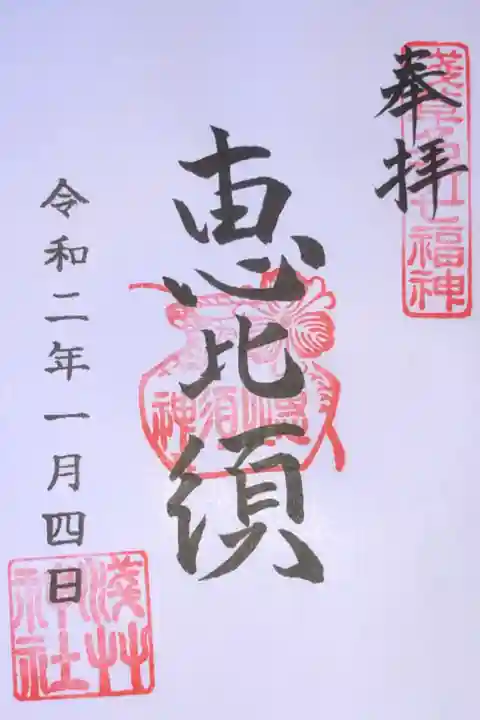 奉拝
淺草名所七福神
恵比須
恵比須神
令和二年一月四日
淺草
神社